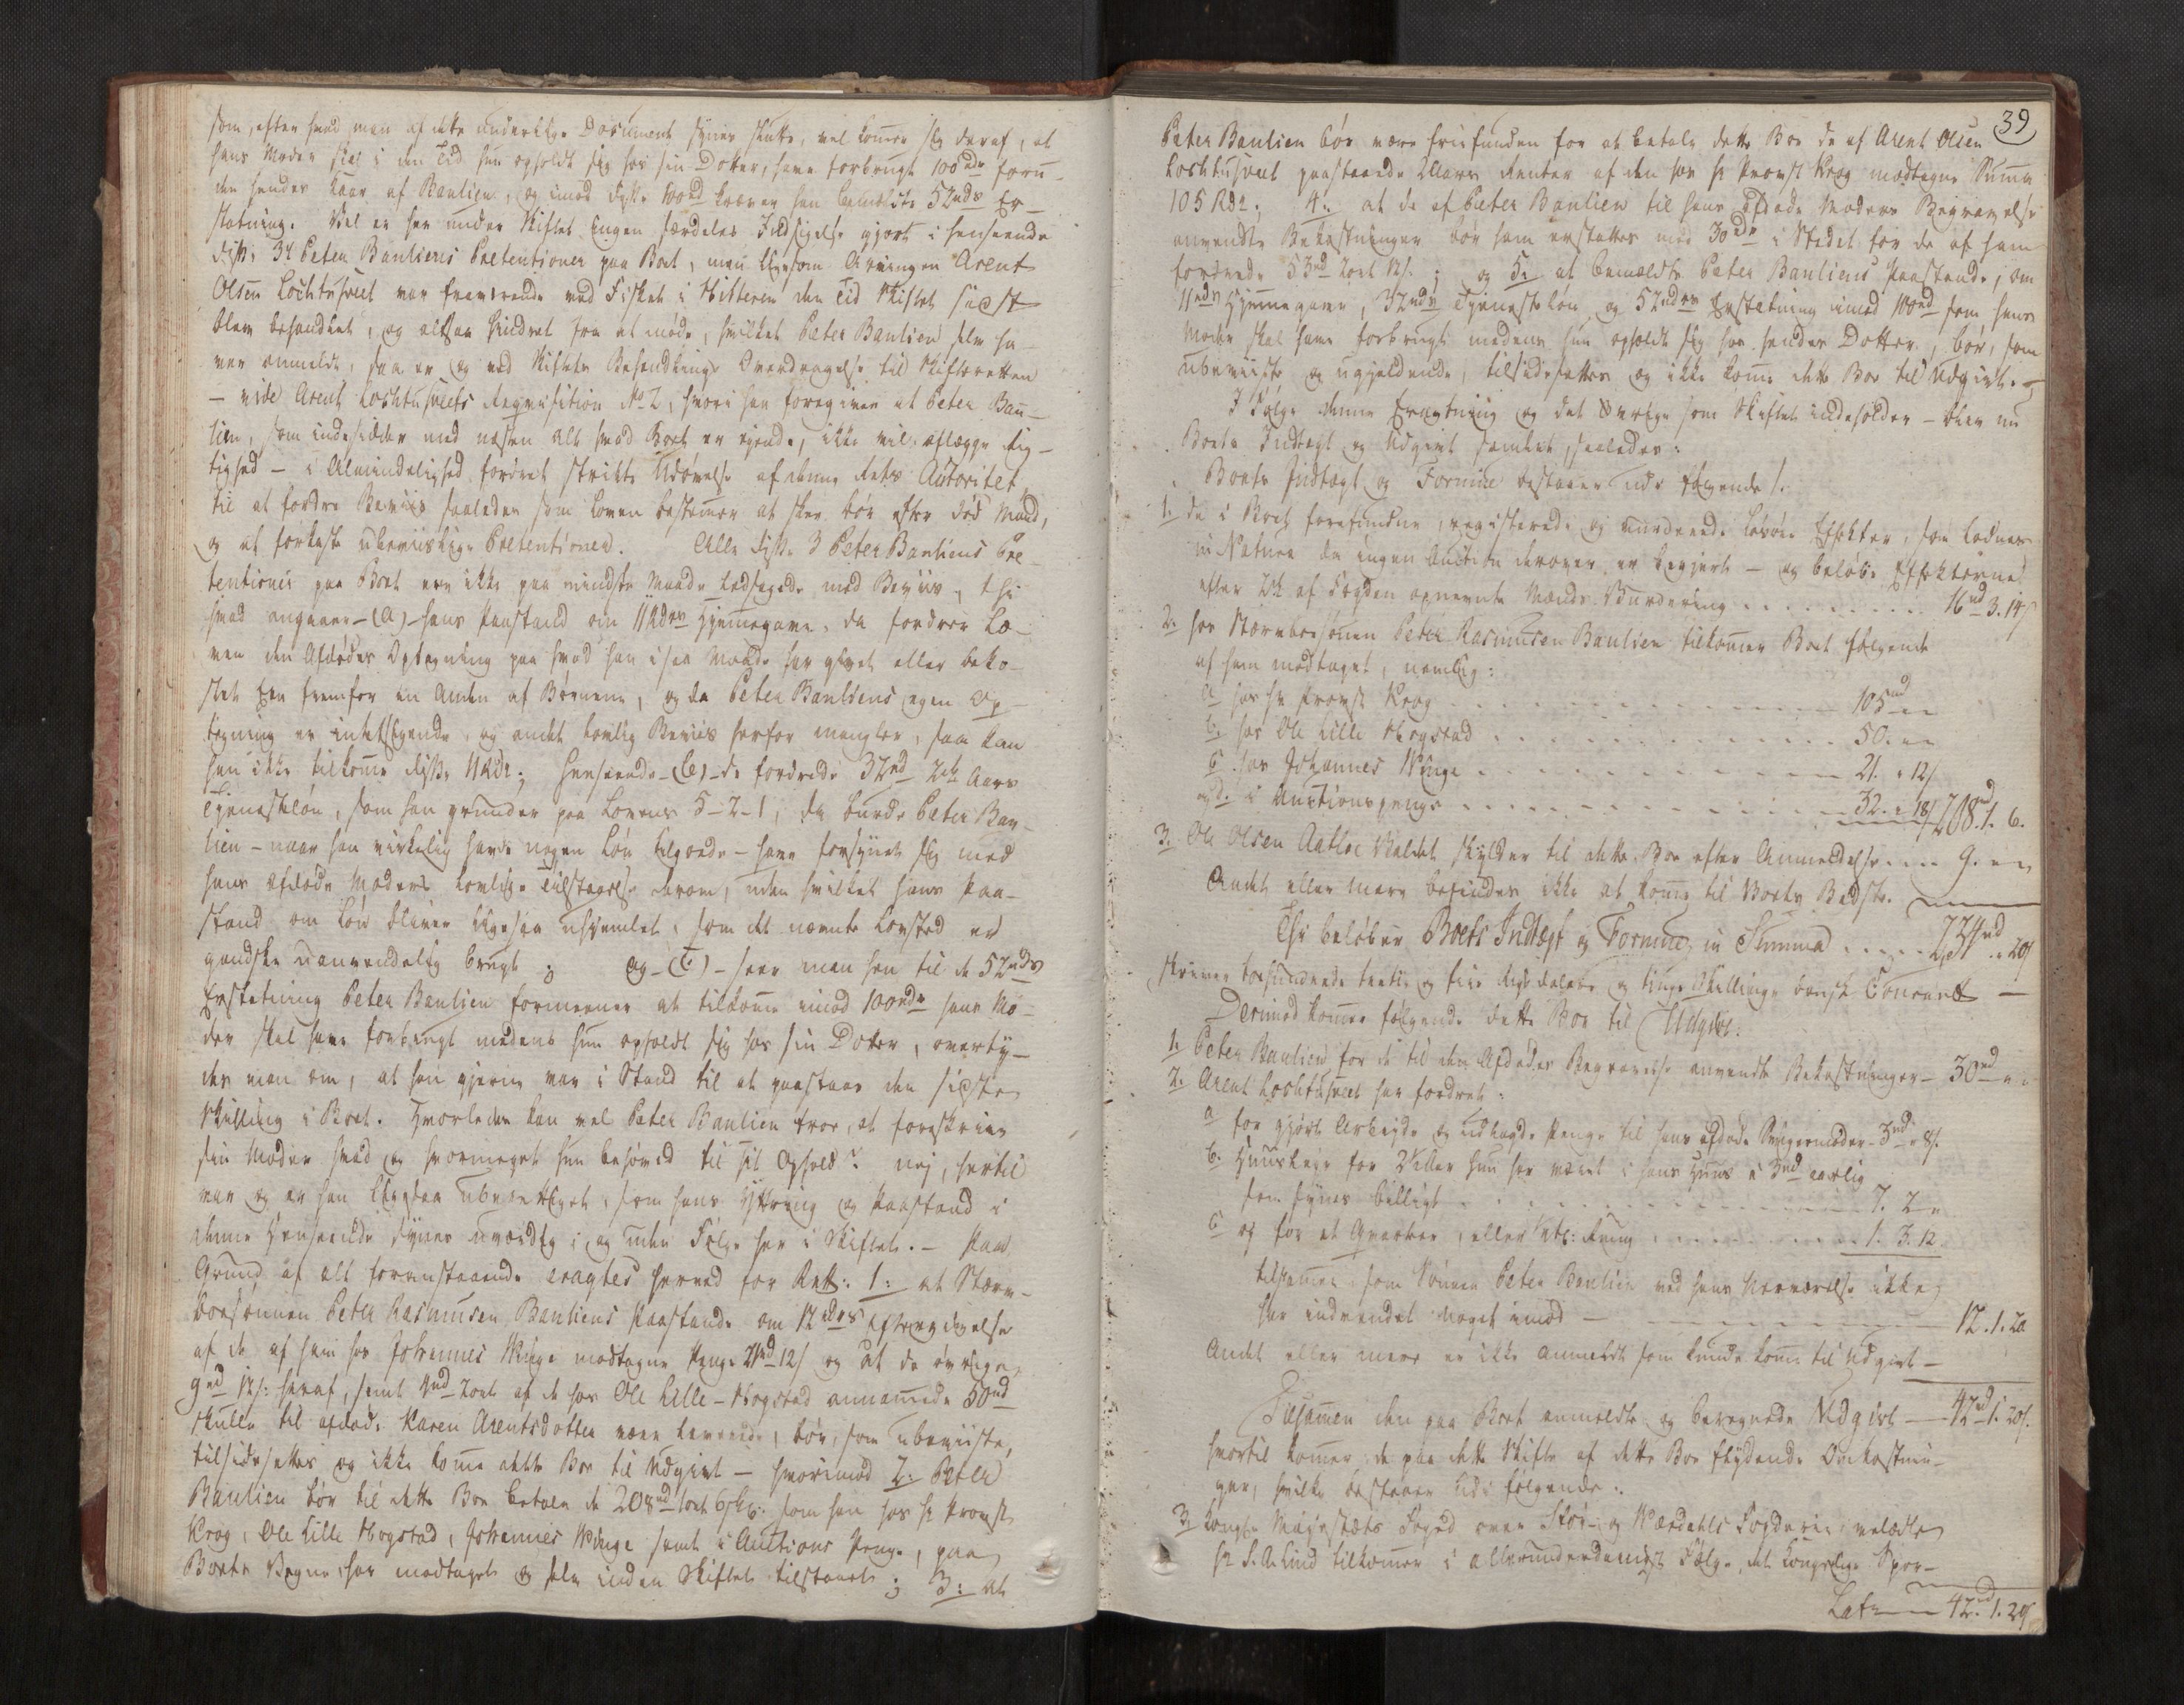 som, efter hvad man af dette underlige Document synes slutte, vel kommer sig deraf, at
hans Moder skal i den Tid hun opholdt sig hos sin Dotter, have forbrugt 100rdr foru-
den hendes Kaar af Baulien, og imod disse 100rd kræver han bemeldte 52rdr Er-
statning. Vel er her under Skiftet ingen særdeles Indsigelse gjort i henseende
disse 3de Peter Bauliens Prætentioner paa Boet, men ligesom Arvingen Arent
Olsen Lochtuhveet var fraværende ved Fisket i Hitteren den Tid Skiftet sidst
blev behandlet, og altsaa hindret fra at møde, hvilket Peter Baulien selv ha-
ver anmeldt, saa er og ved Skiftets Behandlings Overdragelse til Skifteretten
- vide Arent Lochtuhveets Reqvisition No 2, hvori han foregiver at Peter Bau-
lien, som indesidder med næsten alt hvad Boet er ejende, ikke vil aflægge Rig-
tighed - i Almindelighed fordret strikte Udøvelse af denne Rets Autoritet
til at fordre Beviis saaledes som Loven bestemmer at skee bør efter død Mand,
og at forkaste ubeviislige Prætentioner. Alle disse 3 Peter Bauliens Præ-
tentioner paa Boet ere ikke paa mindste Maade ledsagede med Beviis, thi
hvad angaaer - (a) - hans Paastand om 11rdrs Hjemmegave, da fordrer Lo-
ven den Afdødes Optegning paa hvad han i saa Maade har givet eller beko-
stet Een fremfor en Anden af Børnene, og da Peter Bauliens egen Op-
tegning er intetsigende, og andet lovlig Beviis herfor mangler, saa kan
han ikke tilkomme disse 11rdr; Henseende - (b) - de fordrede 32rd 2de Aars
Tjenesteløn, som han grunder paa Lovens 5-2-1, da burde Peter Bau-
lien - naar han virkelig havde nogen Løn tilgode - have forsynet sig med
hans afdøde Moders lovlige Tilstaaelse derom, uden hvilket hans Paa-
stand om Løn bliver ligesaa uhjemlet, som det nævnte Lovsted er
gandske uanvendelig brugt; og - (c) - seer man hen til de 52rdrs
Erstatning Peter Baulien formeener at tilkomme imod 100rdr hans Mo-
der skal have forbrugt medens hun opholdt sig hos sin Dotter, overty-
des man om, at han gjerne var i Stand til at paastaae den sidste
Skilling i Boet. Hvorledes kan vel Peter Baulien troe, at foreskrive
sin Moder hvad og hvormeget hun behøved til sit Ophold? nej, hertil
var og er han ligesaa uberettiget, som hans Yttring og Paastand i
denne Henseende synes uværdig; og uden Følge her i Skiftet. - Paa
Grund af alt foranstaaende eragtes herved for Ret: 1: at Stærv-
boesønnen Peter Rasmusen Bauliens Paastande om 12rdrs Eftergivelse
af de af ham hos Johannes Winge modtagne Penge 21rd 12s og at de øvrige
9rd 12s: heraf, samt 4rd 2ort af de hos Ole Lille-Mogstad annammede 50rd
skulle til afdøde Karen Arentsdotter være leverede, bør, som ubeviiste,
tilsidesættes og ikke komme dette Boe til Udgivt - hvorimod 2: Peter
Baulien bør til dette Boe betale de 208rd 1ort 6skl: som han hos Hr Provst
Krog, Ole Lille Mogstad, Johannes Winge samt i Auctions Penge, paa
Boets Vegne har modtaget og selv inden Skiftet tilstaaet; 3: at
39
Peter Baulien bør være frifunden for at betale dette Boe de af Arent Olsen
Lochtuhveet paastaaede Aars Renter af den hos Hr Provst Krog modtagne Summa
105 Rdr; 4: at de af Peter Baulien til hans afdøde Moders Begravelse
anvendte Bekostninger bør ham erstattes med 30rdr i Stedet for de af ham
fordrede 53rd 2ort 12s.; og 5: at bemeldte Peter Bauliens Paastande, om
11rdrs Hjemmegave, 32rdrs Tjenesteløn og 52rdrs Erstatning imod 100rd som hans
Moder skal have forbrugt medens hun opholdt sig hos hendes Dotter, bør, som
ubeviiste og ugjeldende, tilsidesættes og ikke komme dette Boe til Udgivt. -
I Følge denne Eragtning og det Øvrige som Skiftet indeholder - blev nu
Boets Indtægt og Udgivt samlet, saaledes:
Boets Indtægt og Formue bestaaer udi følgende:
1. de i Boet forefundne, registerede og vurderede løsøre Effekter, som lodnes
in Natura da ingen Auction derover er begjert - og beløbe Effekterne
efter 2de af Fogden opnevnte Mænds Vurdering . . . 16rd 3. 14s
2. hos Stervboesønnen Peter Rasmusen Baulien tilkommer Boet følgende
af ham modtaget, nemlig:
a hos Hr Provst Krog . . . 105rd " "
b. hos Ole Lille Mogstad . . . 50. " "
c. hos Johannes Winge . . . 21. " 12s
og d. i Auctionspenge . . . 32. " 18s 208rd. 1. 6.
3. Ole Olsen Aatloe Valdet skylder til dette Boe efter Anmeldelse . . . 9. " "
Andet eller mere befindes ikke at komme til Boets Bedste.
Thi beløber Boets Indtægt og Formue in Summa . . . 234rd " 20s
skriver toehundrede tretti og fire Rigsdalere og tyve Skillinge dansk Courant -
Derimod kommer følgende dette Boe til Udgivt:
1. Peter Baulien for de til den Afdødes Begravelse anvendte Bekostninger - 30rd " "
2. Arent Lochtuhveet har fordret:
a for gjort Arbejde og udlagde Penge til hans afdøde Svigermoder - 3rd " 8s.
b. Huusleie for Tiden hun har været i hans Huus à 3rd aarlig
som synes billigt . . . 7. 2 "
c og for et Qvarter, eller Vtl: Ruug . . . 1. 3. 12
tilsammen som Sønnen Peter Baulien ved hans Nærværelse ikke
har indvendet noget imod - . . . 12. 1. 20
Andet eller mere er ikke anmeldt som kunde komme til Udgivt -
Tilsammen den paa Boet anmeldte og beregnede Udgivt - 42rd 1. 20s.
hvortil kommer de paa dette Skifte af dette Boe flydende Omkostnin-
ger, hvilke bestaaer udi følgende:
3. Kongl. Majestæts Foged over Stør- og Wærdahls Fogderie, velædle
Hr S. A. Lind tilkommer i allerunderdanigst Følge, det kongelige Spor-
Lat. 42rd. 1. 20s